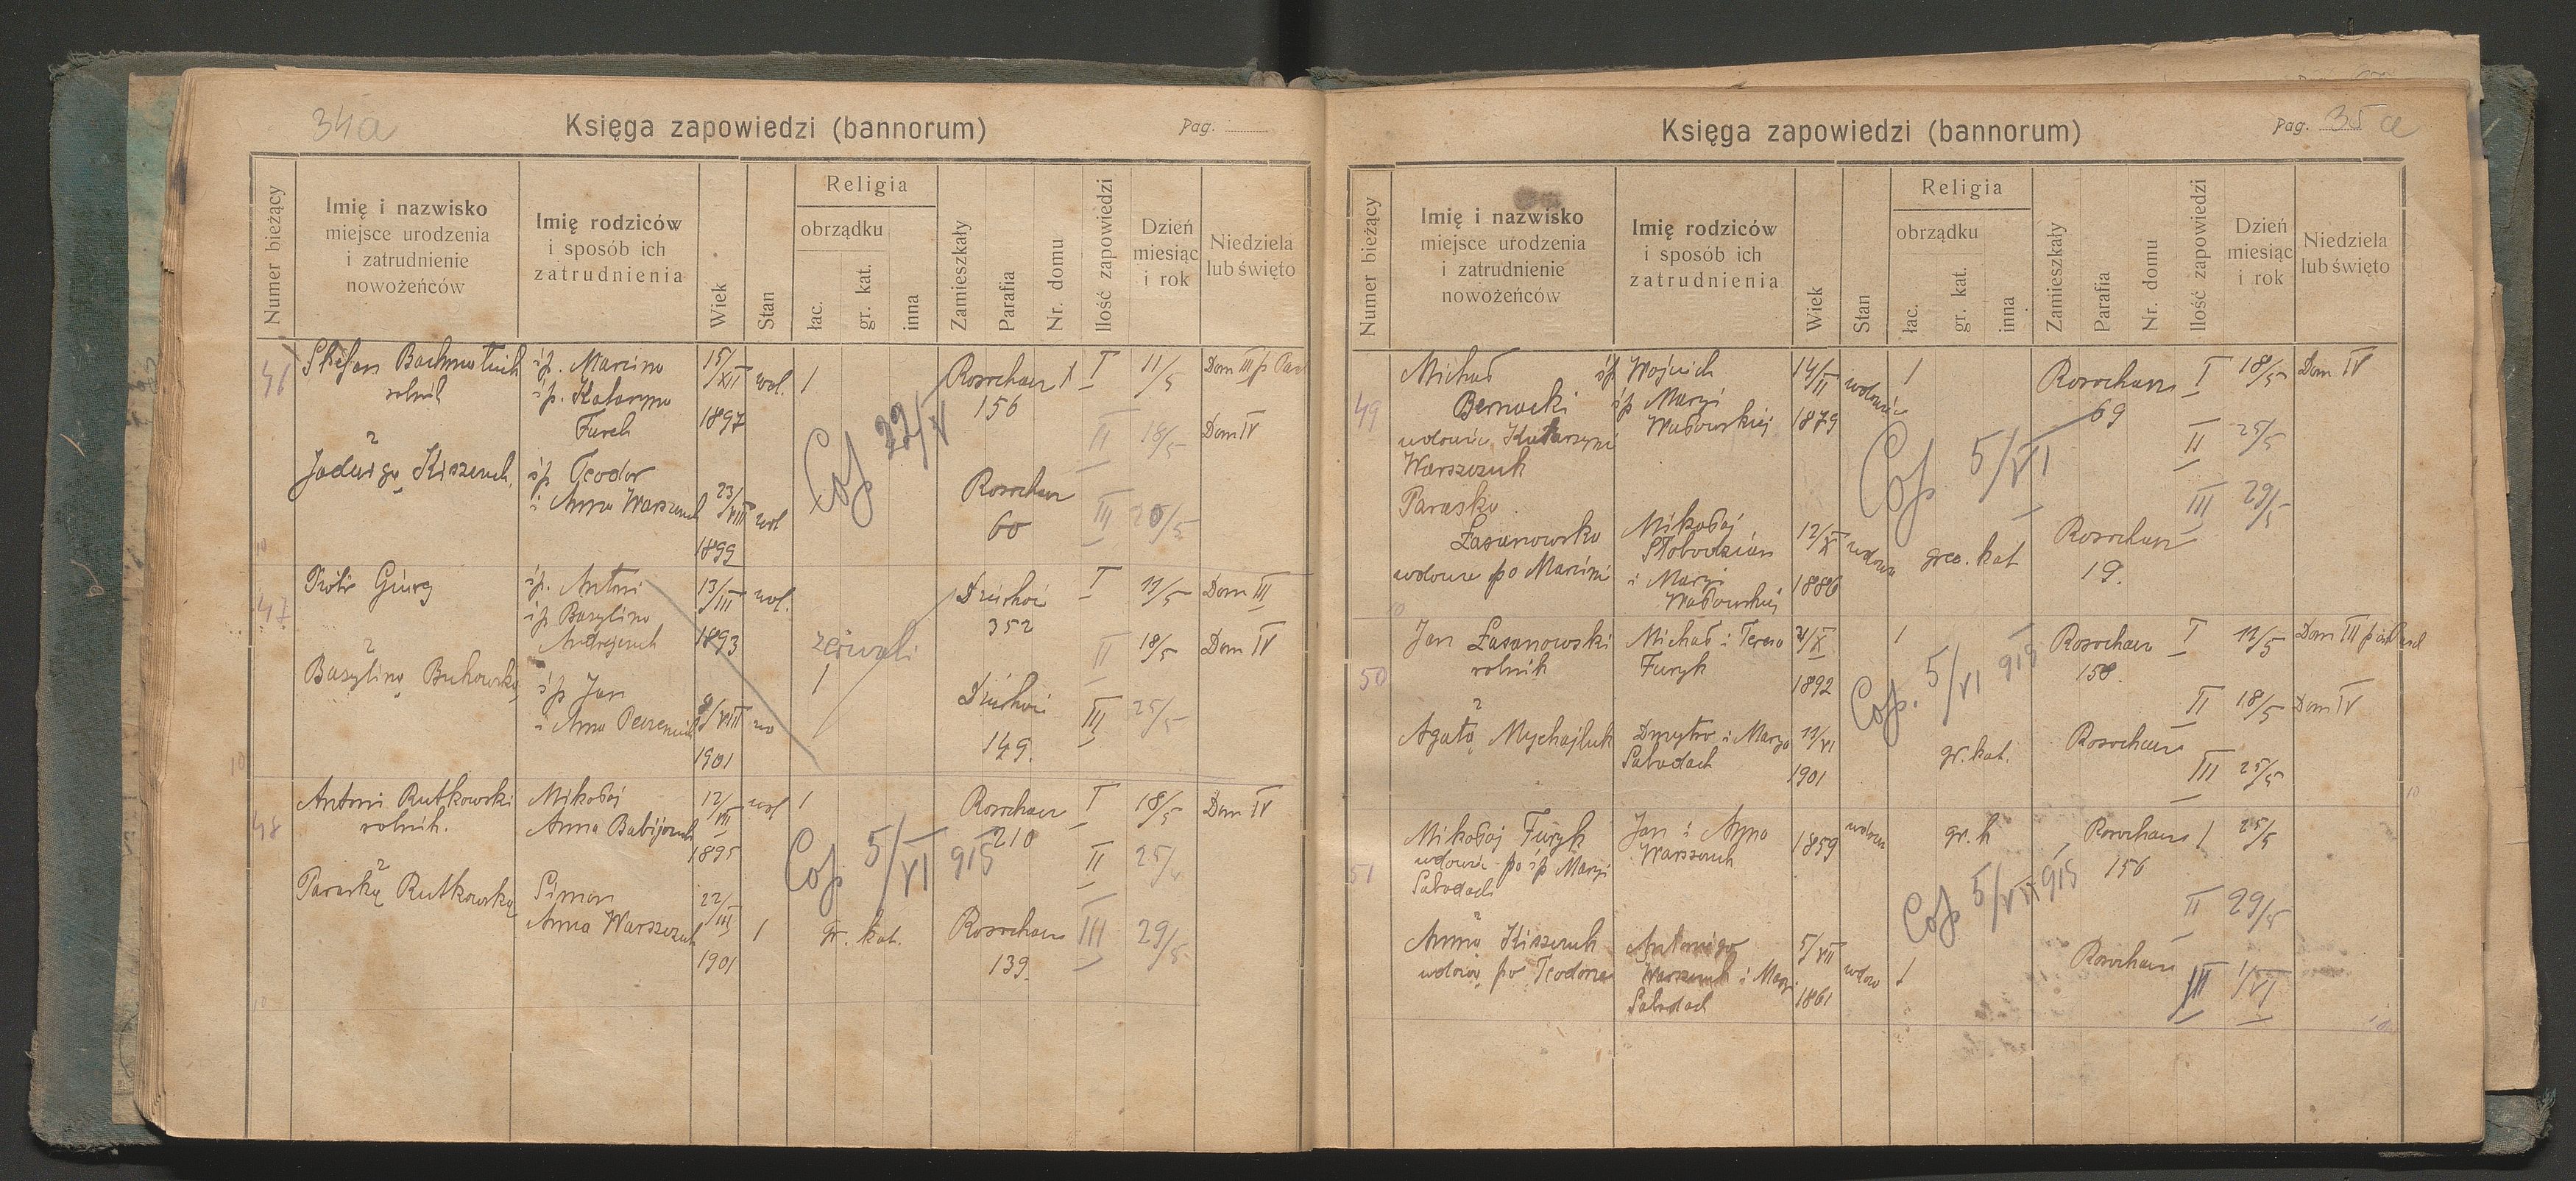 34a
Księga zapowiedzi (bannorum)
Pag.
Numer bieżący
Imię i nazwisko
miejsce urodzenia
i zatrudnienie
nowożeńców
Imię rodziców
i sposób ich
zatrudnienia
Wiek
Stan
Religia
obrządku
łac.
gr. kat.
inna
Zamieszkały
Parafia
Nr. domu
Ilość zapowiedzi
Dzień
miesiąc
i rok
Niedziela
lub święto
46
Stefan
rolnik
z
Jadwigą Kiszczuk
śp. Marcina
śp. Katarzyna
Furch
śp. Teodor
i Anna Warszczuk
15/XII
1897
23/VIII
1899
wol.
wol
1
Cop 22/V
Rosochacz
156
Rosochacz
60
I
II
III
11/5
18/5
Dom III p Pasch
Dom IV
47
Piotr
z
Bazyliną Bukowską
śp. Antoni
śp Bazylina
śp Jan
i Anna
13/III
1893
VIII
1901
wol.
zerwali
1
352
149.
I
II
III
11/5
18/5
25/5
Dom III
Dom IV
48
Antoni Rutkowski
rolnik.
z
Paraską Rutkowską
Mikołaj
Anna
Simon
Anna Warszczuk
12/VII
1895
22/III
1901
wol
1
1
Cop 5/VI 915
gr. kat.
Rosochacz
210
Rosochacz
139.
I
II
III
18/5
25/5
29/5
Dom IV
Księga zapowiedzi (bannorum)
Pag. 35a
Numer bieżący
Imię i nazwisko
miejsce urodzenia
i zatrudnienie
nowożeńców
Imię rodziców
i sposób ich
zatrudnienia
Wiek
Stan
Religia
obrządku
łac.
gr. kat.
inna
Zamieszkały
Parafia
Nr. domu
Ilość zapowiedzi
Dzień
miesiąc
i rok
Niedziela
lub święto
49
Michał
Bernacki
wdowiec Katarzyni
Warszczuk
Paraska
Łasanowska
wdowa po Marcini
śp Wojciech
śp Maryi
Wąsowskiej
Mikołaj
Słobodzian
i Maryi
14/II
1879
12/X
1886
wdowiec
wdowa
1
Cop 5/VI
grec. kat
Rosochacz
69
Rosochacz
19.
I
II
III
18/5
25/5
29/5
Dom IV
50
Jan Łasanowski
rolnik
z
Agatą Mychajluk
Michał i Teresa
Furyk
Dmytro i Marya
Sabadach
2/X
1892
11/VI
1901
1
Cop. 5/VI 915
gr. kat.
Rosochacz
158.
Rosochacz
I
II
III
11/5
18/5
25/5
Dom III p Pasch
Dom IV
51
Mikołaj Furyk
wdowiec po śp Maryi
Sabadach
z
Anną Kiszczuk
wdową po Teodorze
Jan i Anna
Warszczuk
Antoniego
Warszczuk i Maryi
Sabadach
1859
5/VII
1861
wdowa
gr. k
1
Cop 5/VII 915
Rosochacz
156
Rosochacz
I
II
III
25/5
29/5
1/VI